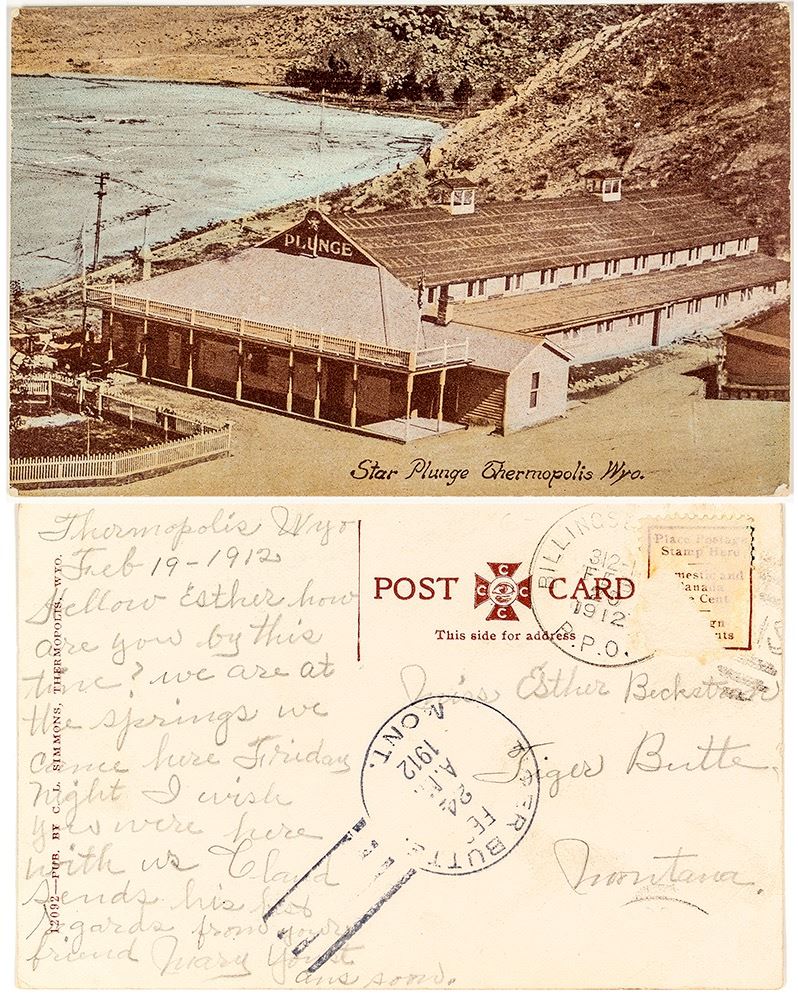 PLUNGE
Star Plunge Thermopolis Wyo.
Thermopolis Wyo
Feb 19-1912
Hellow Esther how
are you by this
time? we are at
the springs we
came here Friday
night I wish
you were here
with us Claud
sends his best
regards from your
friend Mary Yount
ans soon.
12092—PUB. BY C. L. SIMMONS, THERMOPOLIS, WYO.
POST CARD
C C C C
This side for address
BILLINGS
312-1
1912
R.P.O.
Place Postage
Stamp Here
mestic and
anada
e Cent
gn
nts
Miss Esther
Tiger Butte
Montana.
BUTT
MONT.
FEB
24
A.M.
1912